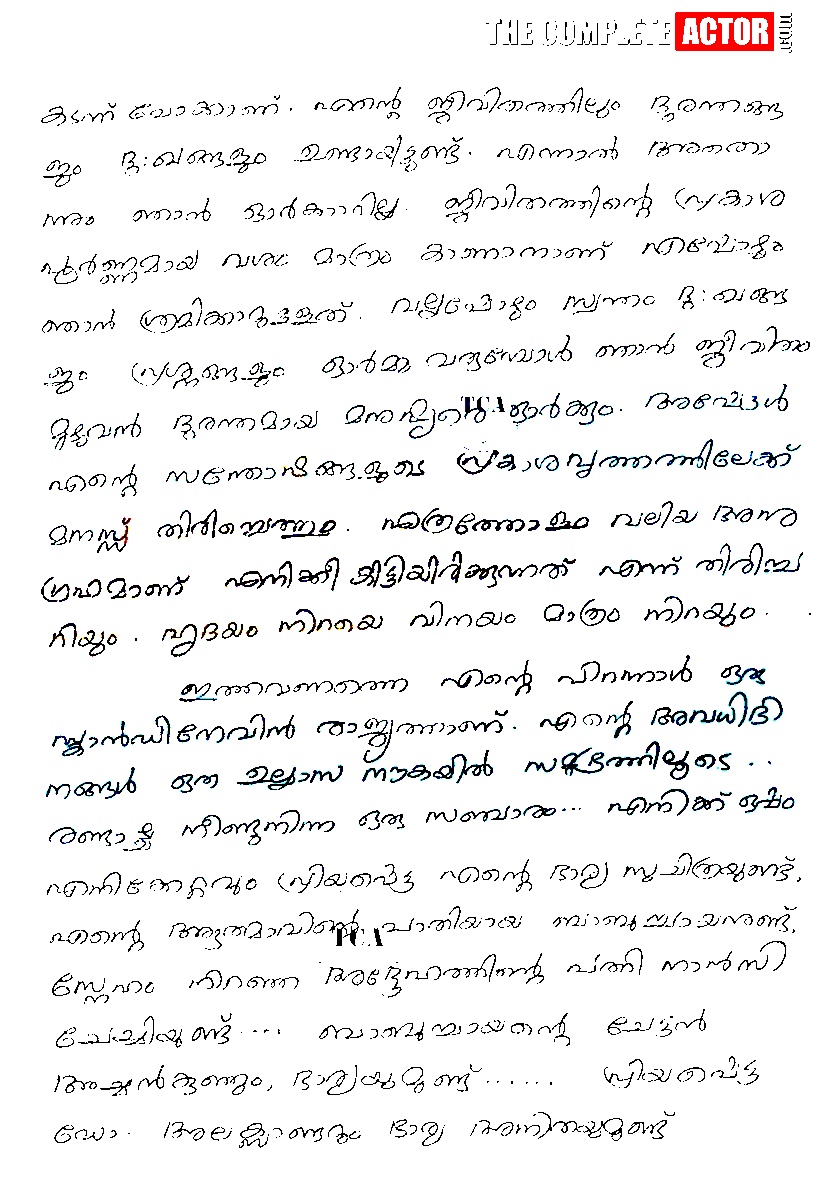 THE COMPLETE ACTOR
കടന്ന് പോകാണ്. എന്റെ ജീവിതത്തിലും ദുരന്തങ്ങ
ളും ദു:ഖങ്ങളും ഉണ്ടായിട്ടുണ്ട്. എന്നാൽ അതൊ
ന്നും ഞാൻ ഓർക്കാറില്ല. ജീവിതത്തിന്റെ പ്രകാശ
പൂർണ്ണമായ വശം മാത്രം കാണാനാണ് എപ്പോഴും
ഞാൻ ശ്രമിക്കാറുള്ളത്. വല്ലപ്പോഴും സ്വന്തം ദു:ഖങ്ങ
ളും പ്രശ്നങ്ങളും ഓർമ്മ വരുമ്പോൾ ഞാൻ ജീവിതം
മുഴുവൻ ദുരന്തമായ മനുഷ്യരെ ഓർക്കും. അപ്പോൾ
എന്റെ സന്തോഷങ്ങളുടെ പ്രകാശവൃത്തത്തിലേക്ക്
മനസ്സ് തിരിച്ചെത്തും. എത്രത്തോളം വലിയ അനു
ഗ്രഹമാണ് എനിക്ക് കിട്ടിയിരിക്കുന്നത് എന്ന് തിരിച്ച
റിയും. ഹൃദയം നിറയെ വിനയം മാത്രം നിറയും.
ഇത്തവണത്തെ എന്റെ പിറന്നാൾ ഒരു
സ്കാൻഡിനേവിൻ രാജ്യത്താണ്. എന്റെ അവധിദി
നങ്ങൾ ഒരു ഉല്ലാസ നൗകയിൽ സമുദ്രത്തിലൂടെ ..
രണ്ടാഴ്ച നീണ്ടുനിന്ന ഒരു സഞ്ചാരം... എനിക്ക് ഒപ്പം
എനിക്കേറ്റവും പ്രിയപ്പെട്ട എന്റെ ഭാര്യ സുചിത്രയുണ്ട്,
എന്റെ ആത്മാവിന്റെ പാതിയായ ബാബുച്ചായനുണ്ട്,
സ്നേഹം നിറഞ്ഞ അദ്ദേഹത്തിന്റെ പത്നി നാൻസി
ചേച്ചിയുണ്ട് .... ബാബുച്ചായന്റെ ചേട്ടൻ
അച്ചൻകുഞ്ഞും, ഭാര്യയുമുണ്ട് ...... പ്രിയപ്പെട്ട
ഡോ. അലക്സാണ്ടറും ഭാര്യ അനിതയുമുണ്ട്